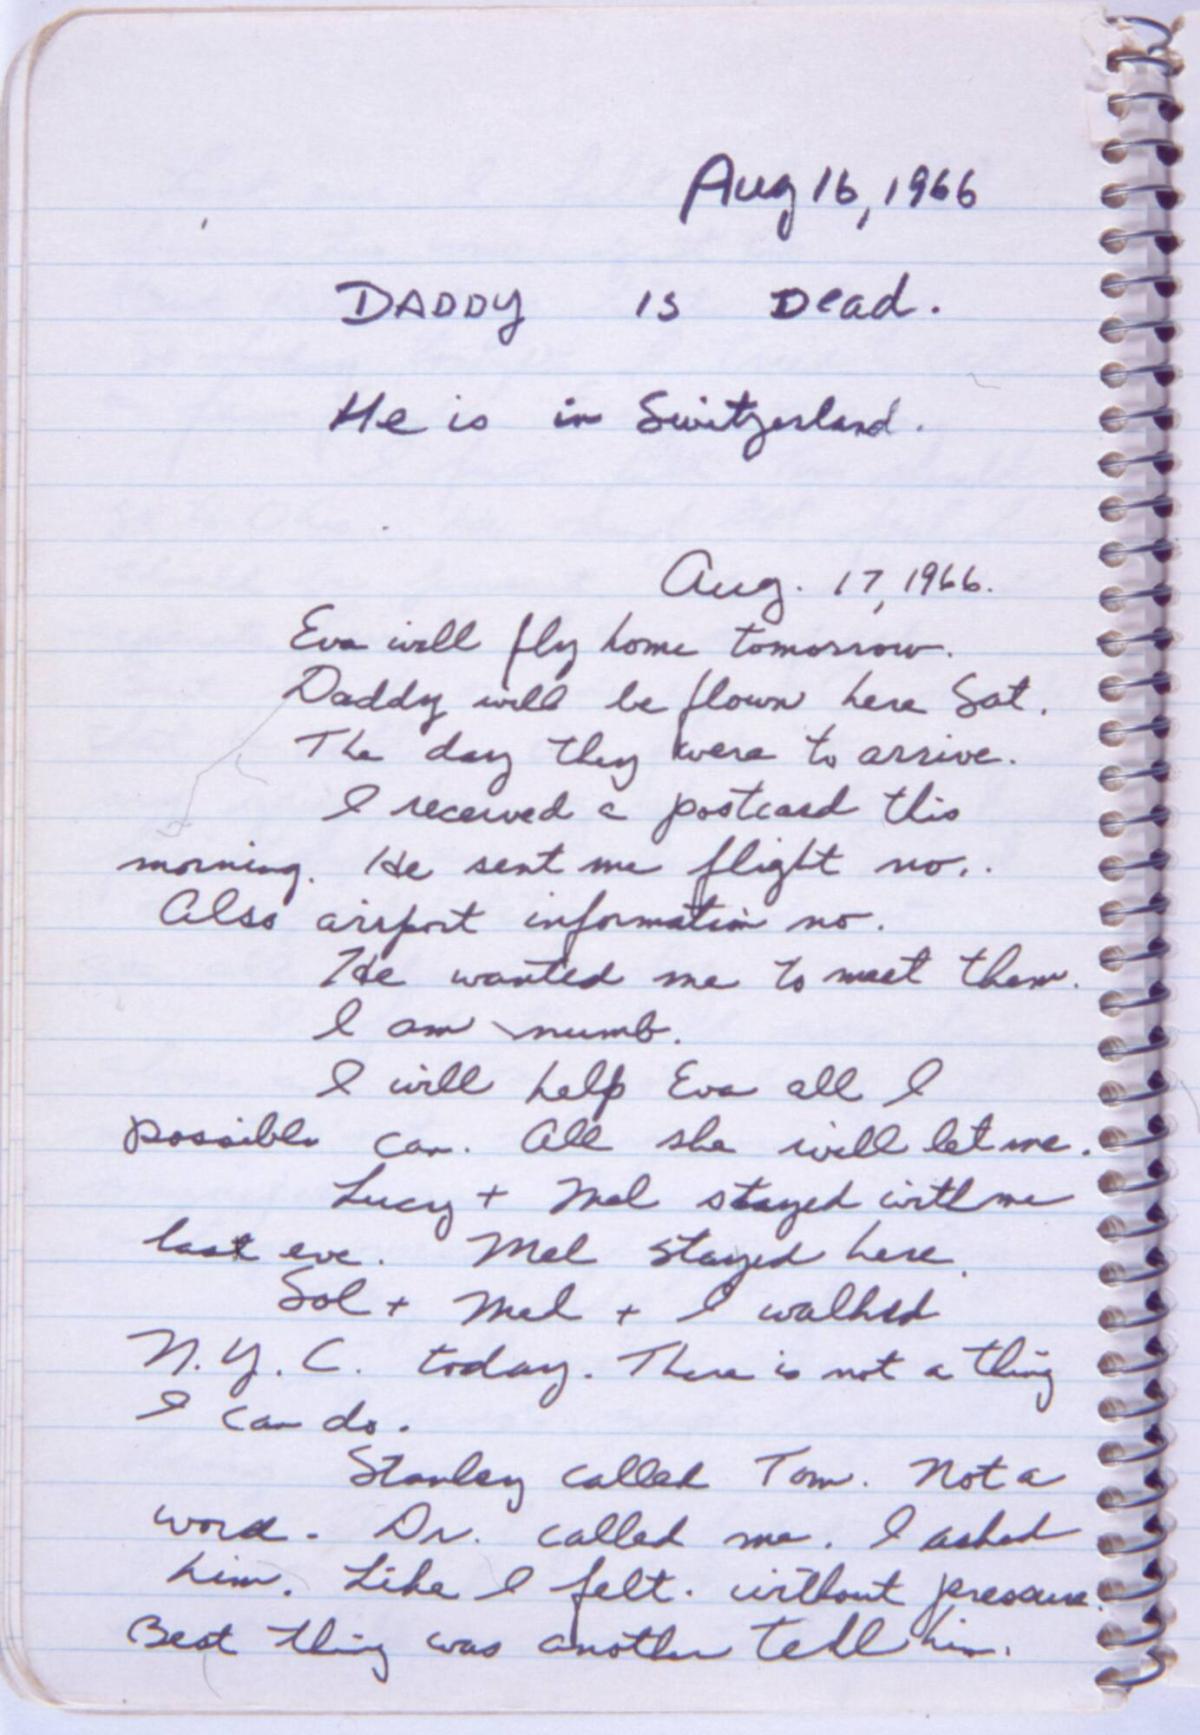 Aug 16, 1966
DADDY is Dead.
He is in Switzerland.
Aug. 17, 1966.
Eva will fly home tomorrow.
Daddy will be flown here Sat.
The day they were to arrive.
I received a postcard this
morning. He sent me flight no..
Also airport information no.
He wanted me to meet them.
I am numb.
I will help Eva all I
possible can. All she will let me.
Lucy + Mel stayed with me
last eve. Mel stayed here.
Sol + Mel + I walked
N.Y.C. today. There is not a thing
I can do.
Stanley called Tom. Not a
word. Dr. called me. I asked
him. Like I felt. without pressure.
Best thing was another tell him.